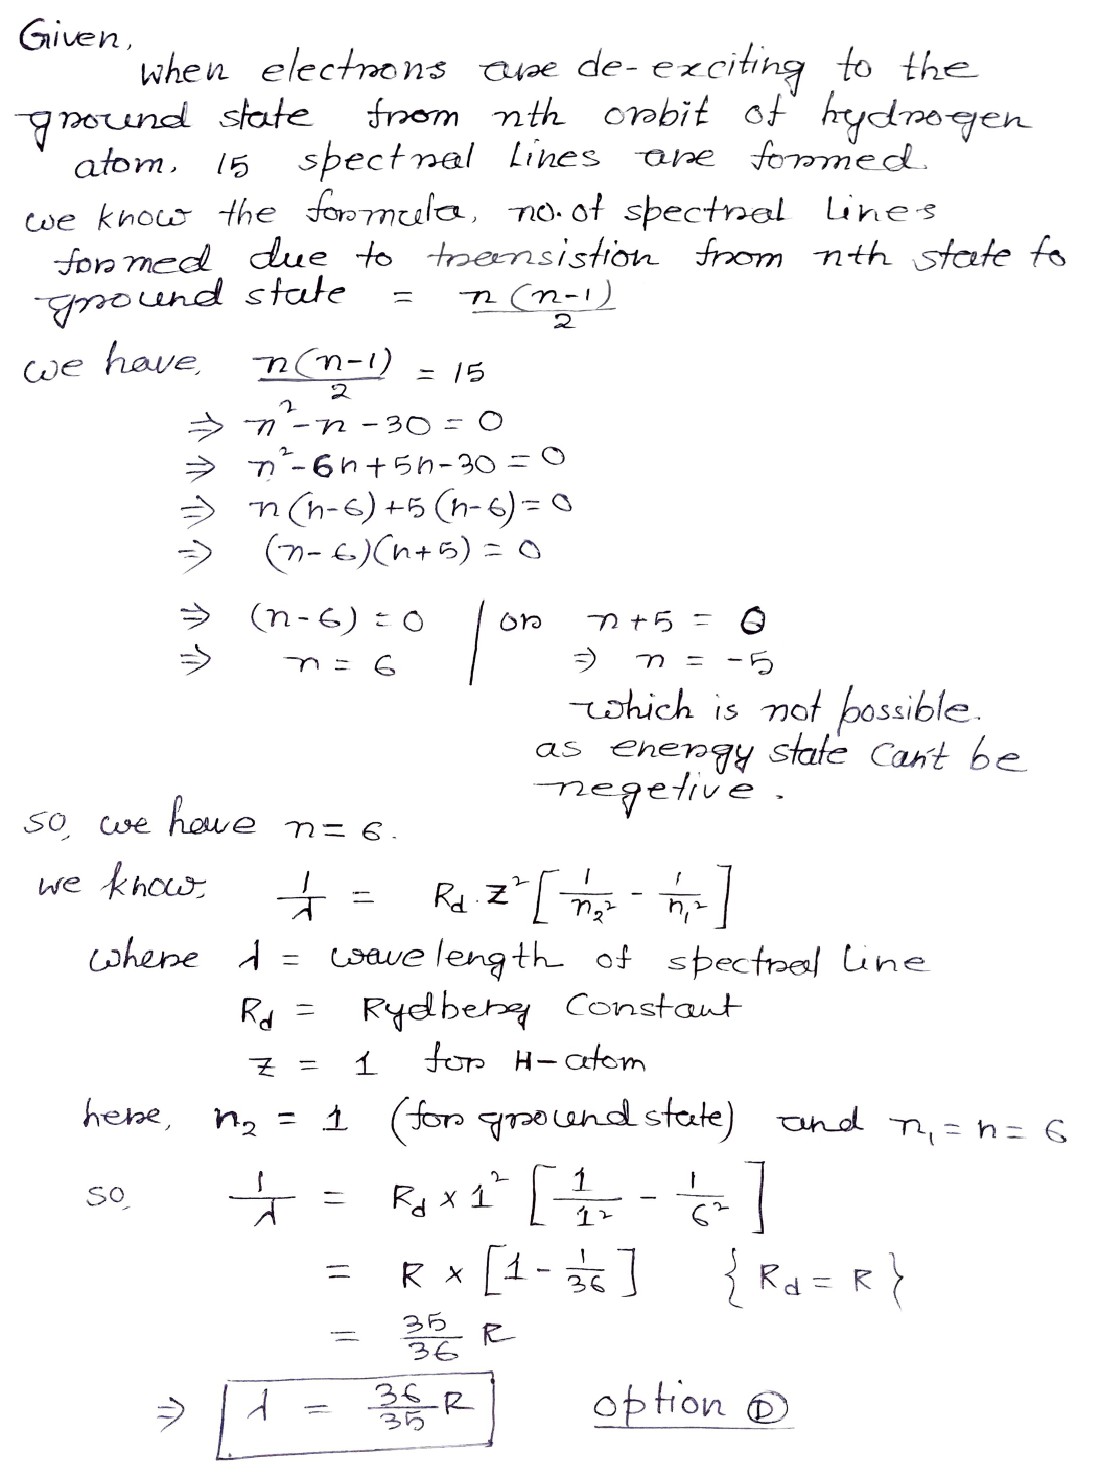 Given,
when electrons are de-exciting to the
ground state from nth orbit of hydrogen
atom, 15 spectral lines are formed.
we know the formula, no. of spectral lines
formed due to transistion from nth state to
ground state = n(n-1)/2
we have, n(n-1)/2 = 15
⇒ n² - n - 30 = 0
⇒ n² - 6n + 5n - 30 = 0
⇒ n(n-6) + 5(n-6) = 0
⇒ (n-6)(n+5) = 0
⇒ (n-6) = 0 | or n+5 = 0
⇒ n = 6 | ⇒ n = -5
which is not possible.
as energy state can't be
negetive.
so, we have n = 6.
we know, 1/λ = Rd . Z² [1/n₂² - 1/n₁²]
where λ = wavelength of spectral line
Rd = Rydberg Constant
Z = 1 for H-atom
here, n₂ = 1 (for ground state) and n₁ = n = 6
so, 1/λ = Rd × 1² [1/1² - 1/6²]
= R × [1 - 1/36] {Rd = R}
= 35/36 R
⇒ λ = 36/35 R option Ⓓ